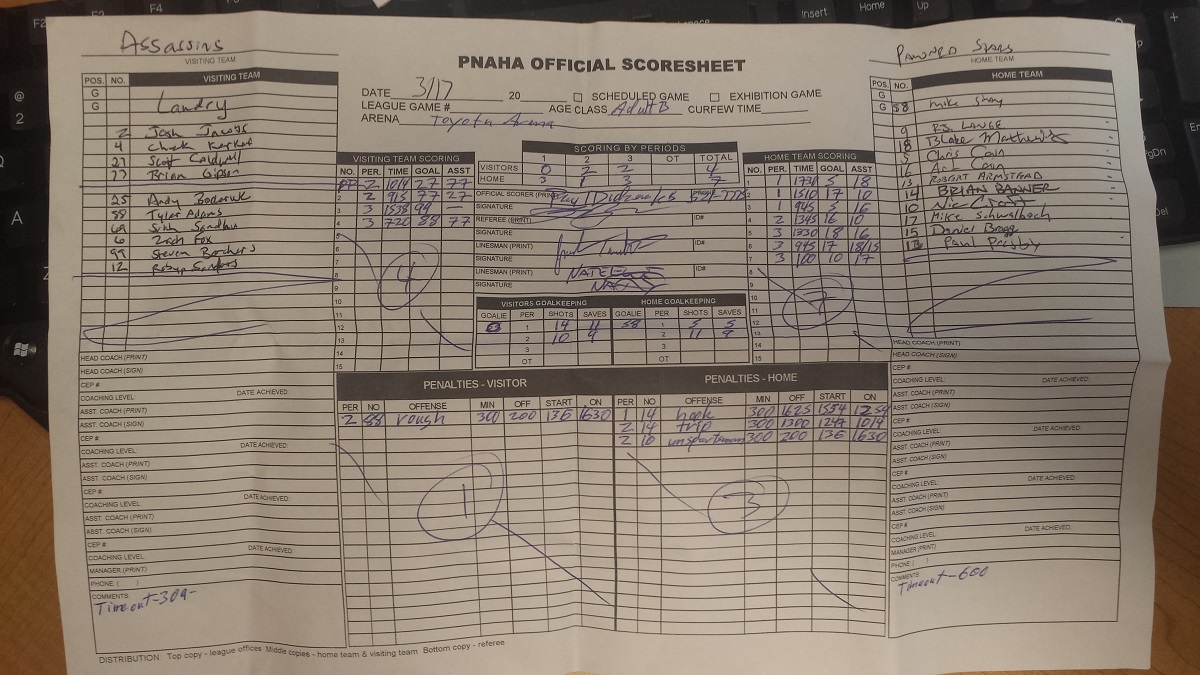 F2
F4
Insert
Home
Up
@
2
A
Assassins
VISITING TEAM
PNAHA OFFICIAL SCORESHEET
HOME TEAM
DATE 3/17 20 SCHEDULED GAME EXHIBITION GAME
LEAGUE GAME # AGE CLASS Adult B CURFEW TIME
ARENA Toyota Arena
POS. NO. VISITING TEAM
G
G Landry
2 Josh Jacobs
4 Chuck
27 Scott Caldwell
77 Brian Gipson
25 Andy
88 Tyler Adams
69
6 Zach Fox
99 Steven Borchers
12
HEAD COACH (PRINT)
HEAD COACH (SIGN)
CEP # DATE ACHIEVED:
COACHING LEVEL:
ASST. COACH (PRINT)
ASST. COACH (SIGN)
CEP # DATE ACHIEVED:
COACHING LEVEL:
ASST. COACH (PRINT)
ASST. COACH (SIGN)
CEP # DATE ACHIEVED:
COACHING LEVEL:
ASST. COACH (PRINT)
ASST. COACH (SIGN)
CEP # DATE ACHIEVED:
COACHING LEVEL:
MANAGER (PRINT)
PHONE ( )
COMMENTS:
Timeout-309-
VISITING TEAM SCORING
NO. PER. TIME GOAL ASST
PP 2 1014 27 77
2 2 915 77 27
3 3 1538 99 —
4 3 720 88 77
5
6
7
8
9
10
11
12
13
14
15
4
SCORING BY PERIODS
1 2 3 OT TOTAL
VISITORS 0 2 2 4
HOME 3 1 3 7
OFFICIAL SCORER (PRINT) PHONE
SIGNATURE
REFEREE (PRINT) ID#
SIGNATURE
LINESMAN (PRINT) ID#
SIGNATURE
LINESMAN (PRINT) ID#
SIGNATURE
VISITORS GOALKEEPING HOME GOALKEEPING
GOALIE PER SHOTS SAVES GOALIE PER SHOTS SAVES
1 14 11 58 1 5 5
2 10 9 2 11 9
3 3
OT OT
HOME TEAM SCORING
NO. PER. TIME GOAL ASST
1 1 1730 5 18
2 1 1510 17 10
3 1 945 5 16
4 2 1345 16 10
5 3 1330 18 16
6 3 945 17 18/15
7 3 100 10 17
8
9
10
11
12
13
14
15
7
POS. NO. HOME TEAM
G
G 58 mike
9 RJ. LANGE
18 Blake
5 Chris Cain
16 Art Cain
13 ROBERT ARMSTEAD
14 BRIAN BANNER
10 Nic Croft
17 Mike Schwalbach
15 Daniel Bragg
Paul Presby
HEAD COACH (PRINT)
HEAD COACH (SIGN)
CEP #
COACHING LEVEL: DATE ACHIEVED:
ASST. COACH (PRINT)
ASST. COACH (SIGN)
CEP #
COACHING LEVEL: DATE ACHIEVED:
ASST. COACH (PRINT)
ASST. COACH (SIGN)
CEP #
COACHING LEVEL: DATE ACHIEVED:
ASST. COACH (PRINT)
ASST. COACH (SIGN)
CEP #
COACHING LEVEL: DATE ACHIEVED:
MANAGER (PRINT)
PHONE ( )
COMMENTS:
Timeout-600
PENALTIES - VISITOR PENALTIES - HOME
PER NO OFFENSE MIN OFF START ON PER NO OFFENSE MIN OFF START ON
2 88 rough 300 200 136 1630 1 14 hook 300 1625 1554 1254
2 14 trip 300 1300 1247 1014
2 10 300 200 136 1630
1 3
DISTRIBUTION: Top copy - league offices Middle copies - home team & visiting team Bottom copy - referee